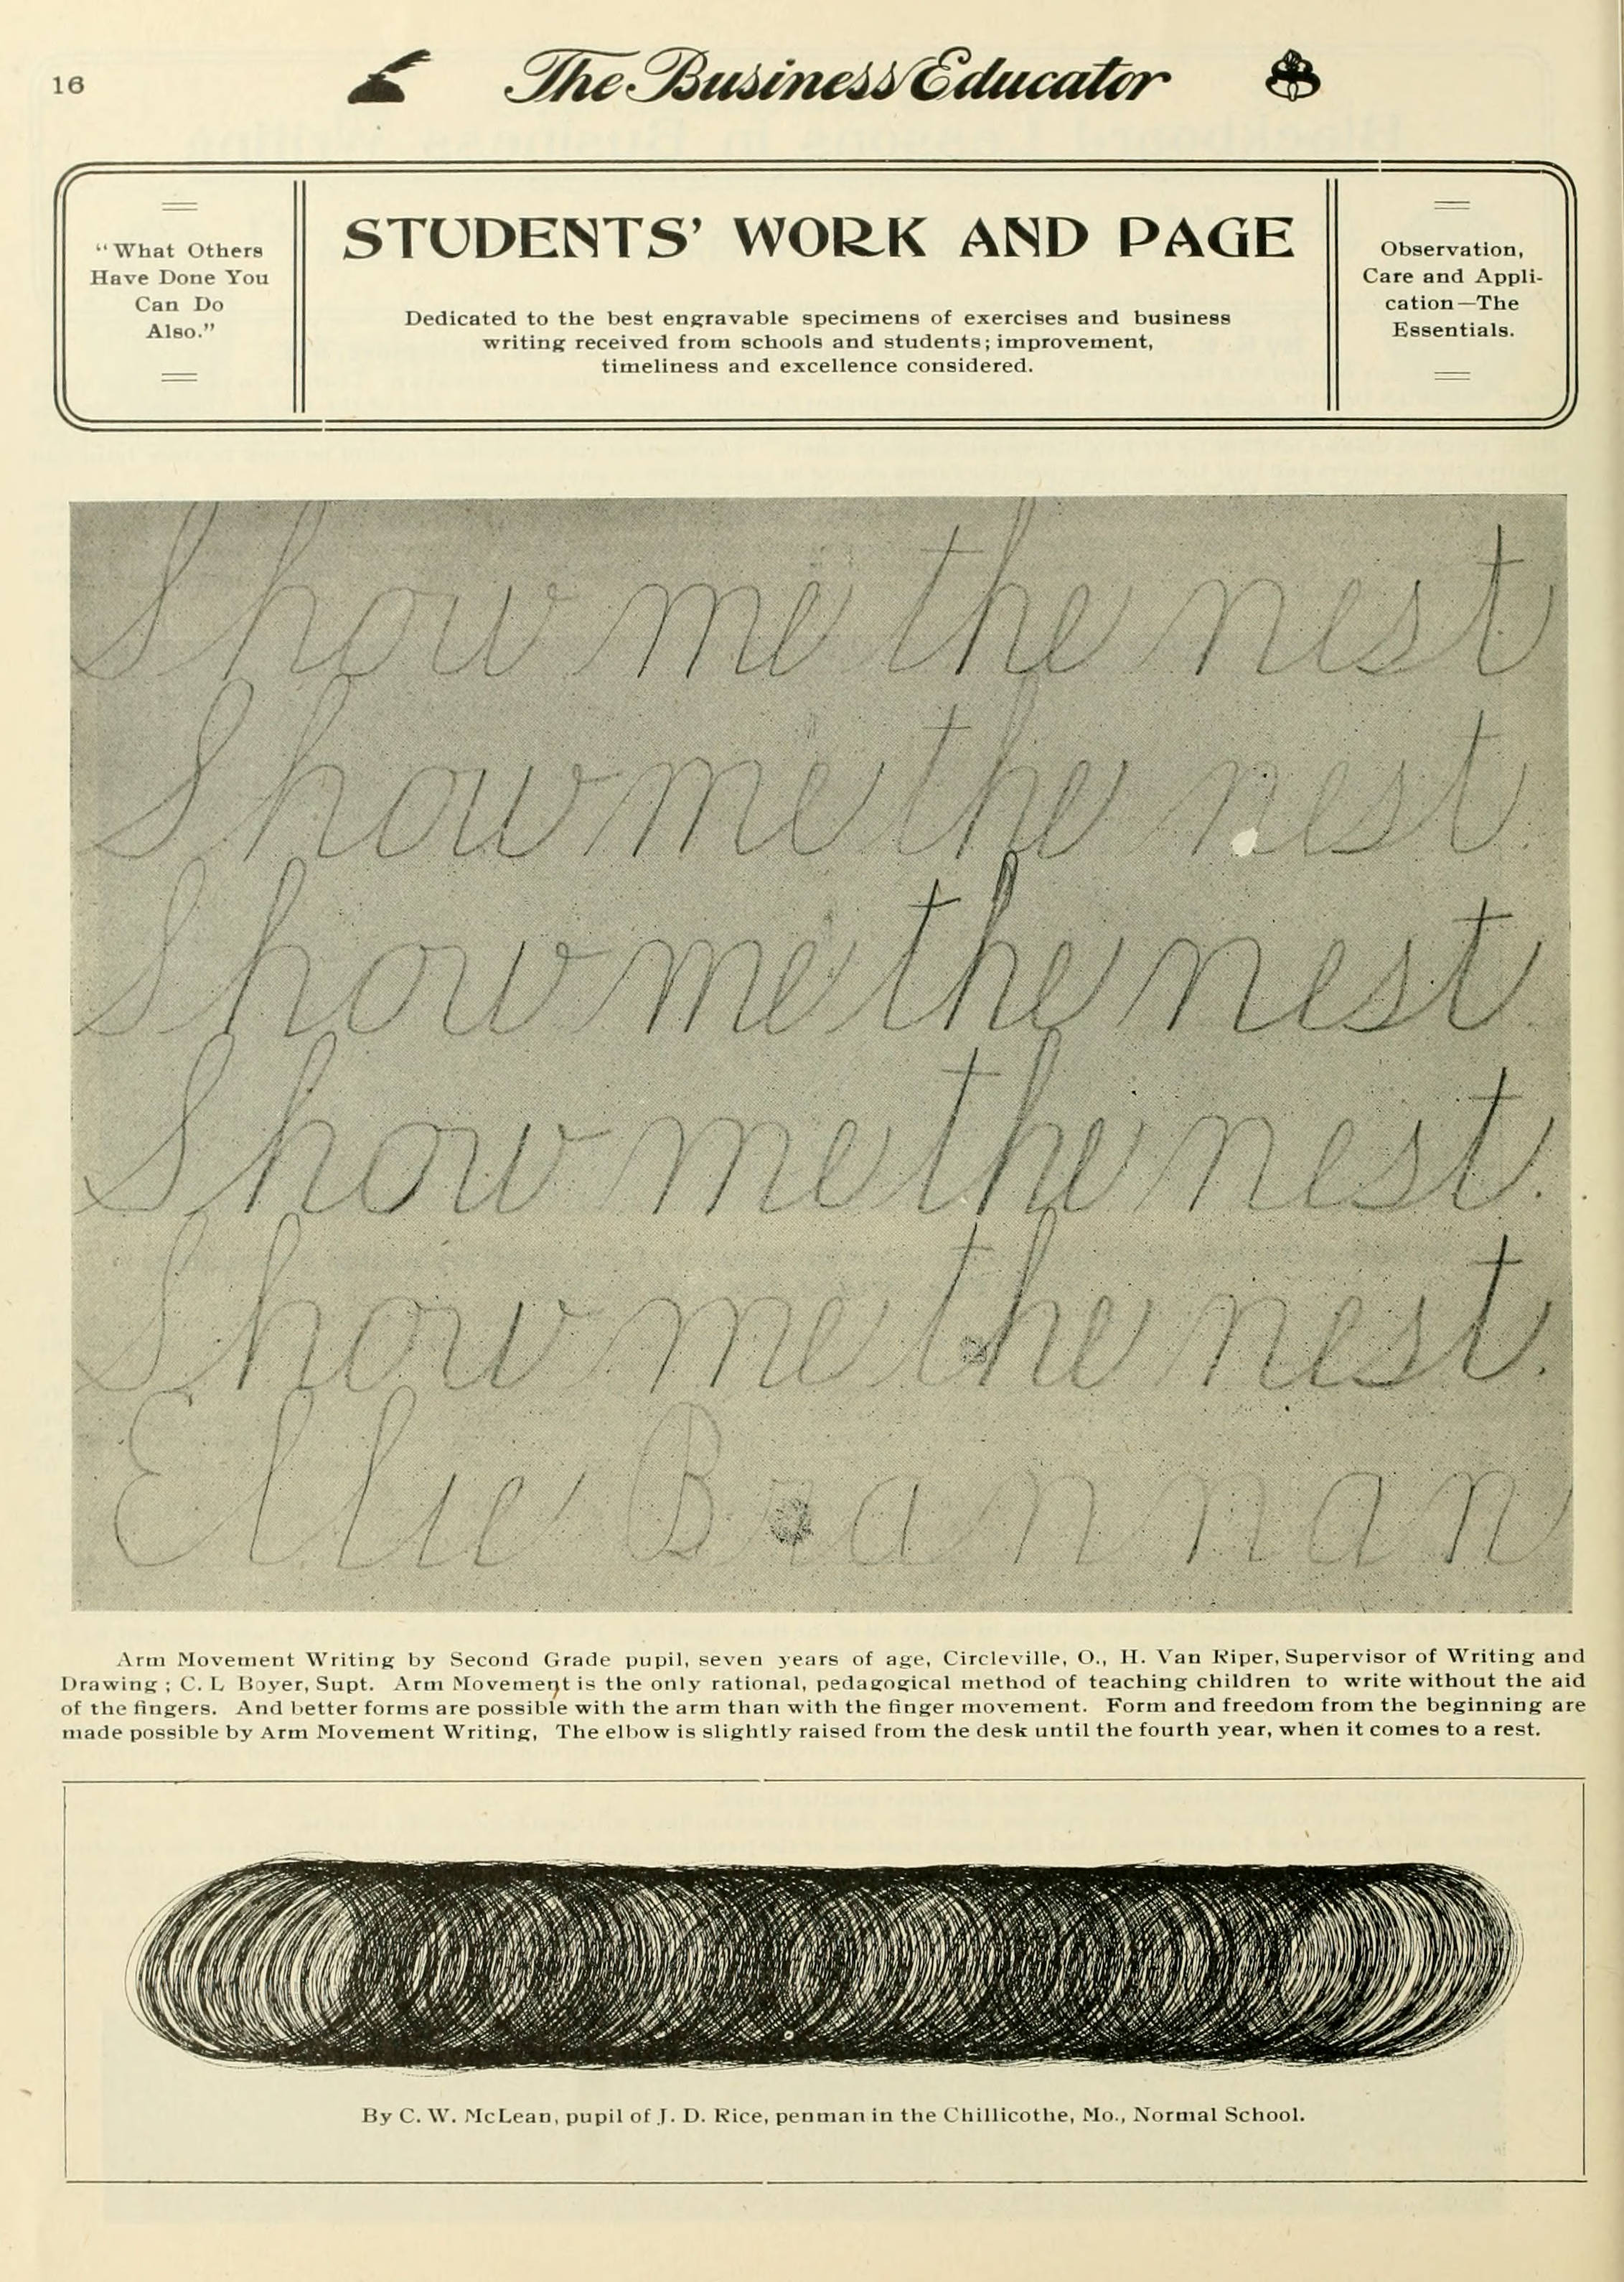 16
The Business Educator
"What Others
Have Done You
Can Do
Also."
STUDENTS' WORK AND PAGE
Dedicated to the best engravable specimens of exercises and business
writing received from schools and students; improvement,
timeliness and excellence considered.
Observation,
Care and Appli-
cation—The
Essentials.
Show me the nest
Show me the nest.
Show me the nest.
Show me the nest.
Show me the nest.
Ellie Brannan
Arm Movement Writing by Second Grade pupil, seven years of age, Circleville, O., H. Van Riper, Supervisor of Writing and
Drawing; C. L Boyer, Supt. Arm Movement is the only rational, pedagogical method of teaching children to write without the aid
of the fingers. And better forms are possible with the arm than with the finger movement. Form and freedom from the beginning are
made possible by Arm Movement Writing, The elbow is slightly raised from the desk until the fourth year, when it comes to a rest.
By C. W. McLean, pupil of J. D. Rice, penman in the Chillicothe, Mo., Normal School.